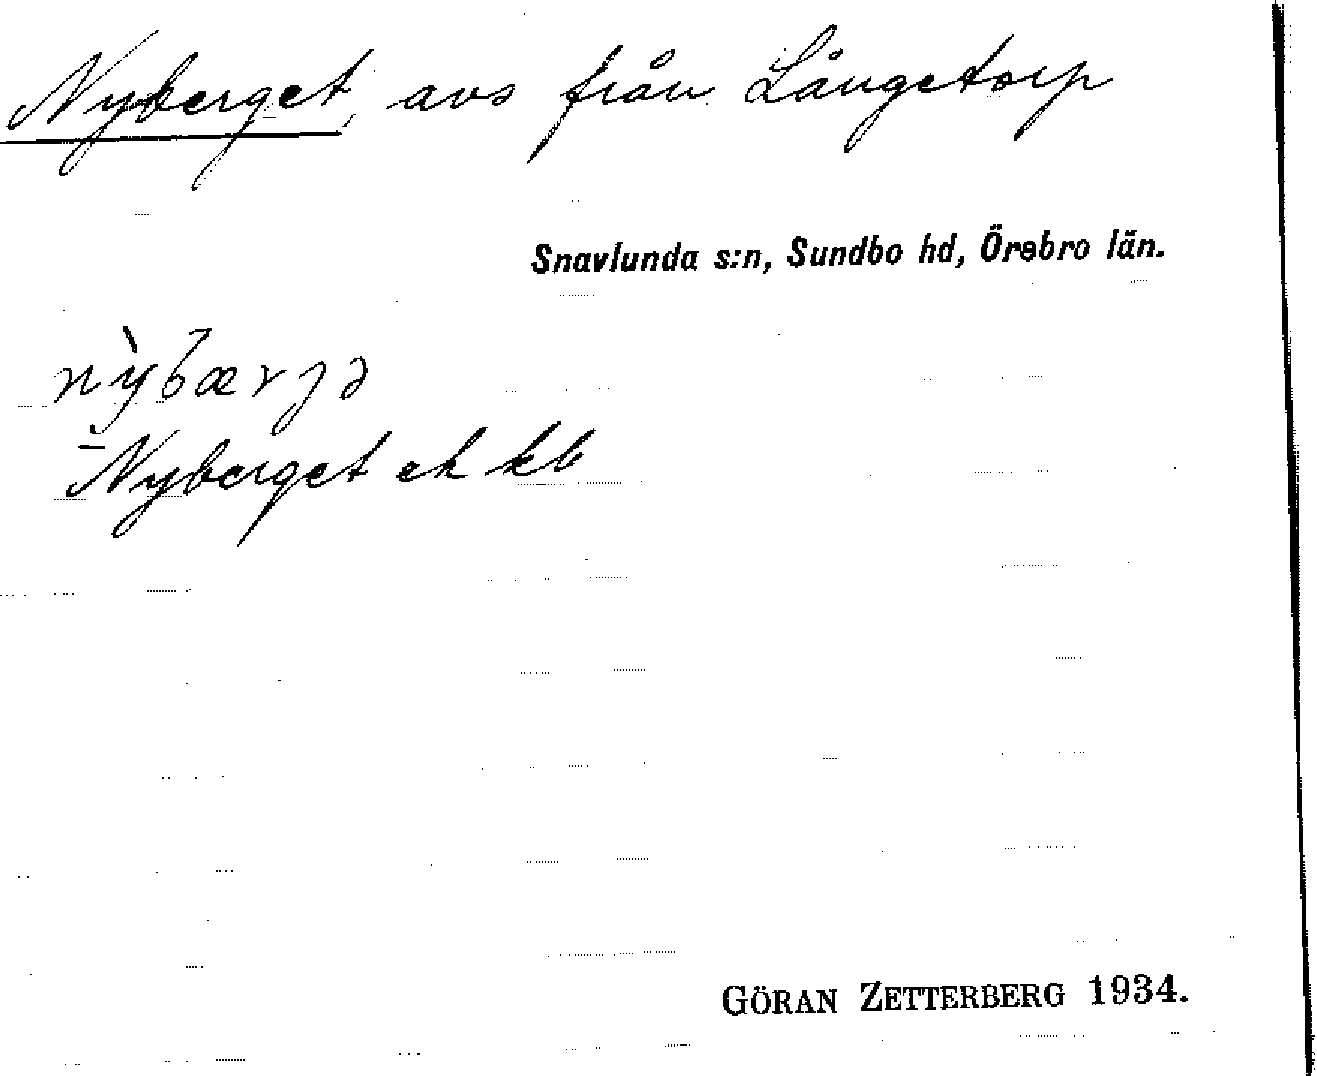 Nyberget, avs från Långetorp
Snavlunda s:n, Sundbo hd, Örebro län.
nỳbærjə
Nyberget ek kb
GÖRAN ZETTERBERG 1934.